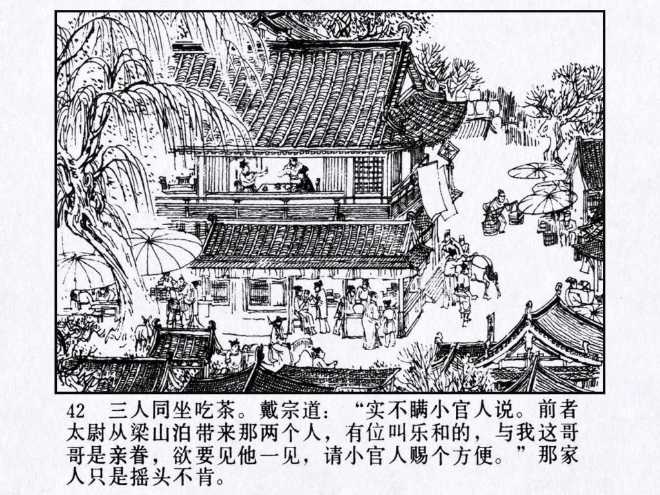 42 三人同坐吃茶。戴宗道：“实不瞒小官人说。前者
太尉从梁山泊带来那两个人，有位叫乐和的，与我这哥
哥是亲眷，欲要见他一见，请小官人赐个方便。”那家
人只是摇头不肯。